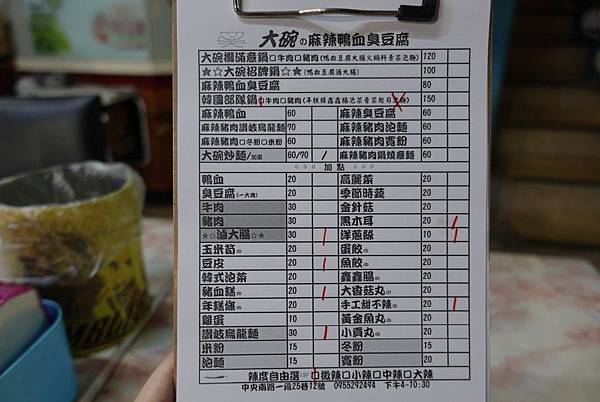 大碗の麻辣鴨血臭豆腐
大碗獨滿意鍋□牛肉□豬肉(鴨血豆腐大腸火鍋料青菜泡麵) 120
☆☆大碗招牌鍋☆☆(鴨血豆腐滷大腸) 100
麻辣鴨血臭豆腐 80
韓國部隊鍋□牛肉□豬肉 150
麻辣鴨血 60 麻辣臭豆腐 60
麻辣豬肉讚岐烏龍麵 70 麻辣豬肉泡麵 60
麻辣豬肉□冬粉□米粉 60 麻辣豬肉寬粉 60
大碗炒麵/加蛋 60/70 / 麻辣豬肉鍋燒意麵 60
○○○ 加點 ○○○
鴨血 20 高麗菜 20
臭豆腐(一大塊) 20 季節時蔬 20
牛肉 30 金針菇 20
豬肉 30 黑木耳 20
☆☆滷大腸☆☆ 30 洋蔥酥 10
玉米筍 20 蛋餃 20
豆皮 20 魚餃 20
韓式泡菜 20 鑫鑫腸 20
豬血糕 20 大香菇丸 20
年糕條 20 手工甜不辣 20
雞蛋 10 黃金魚丸 20
讚岐烏龍麵 30 小貢丸 20
米粉 15 冬粉 15
泡麵 15 寬粉 20
辣度自由選 □微辣□小辣□中辣□大辣
中央南路一段25巷12號 0955292494 下午4-10:30